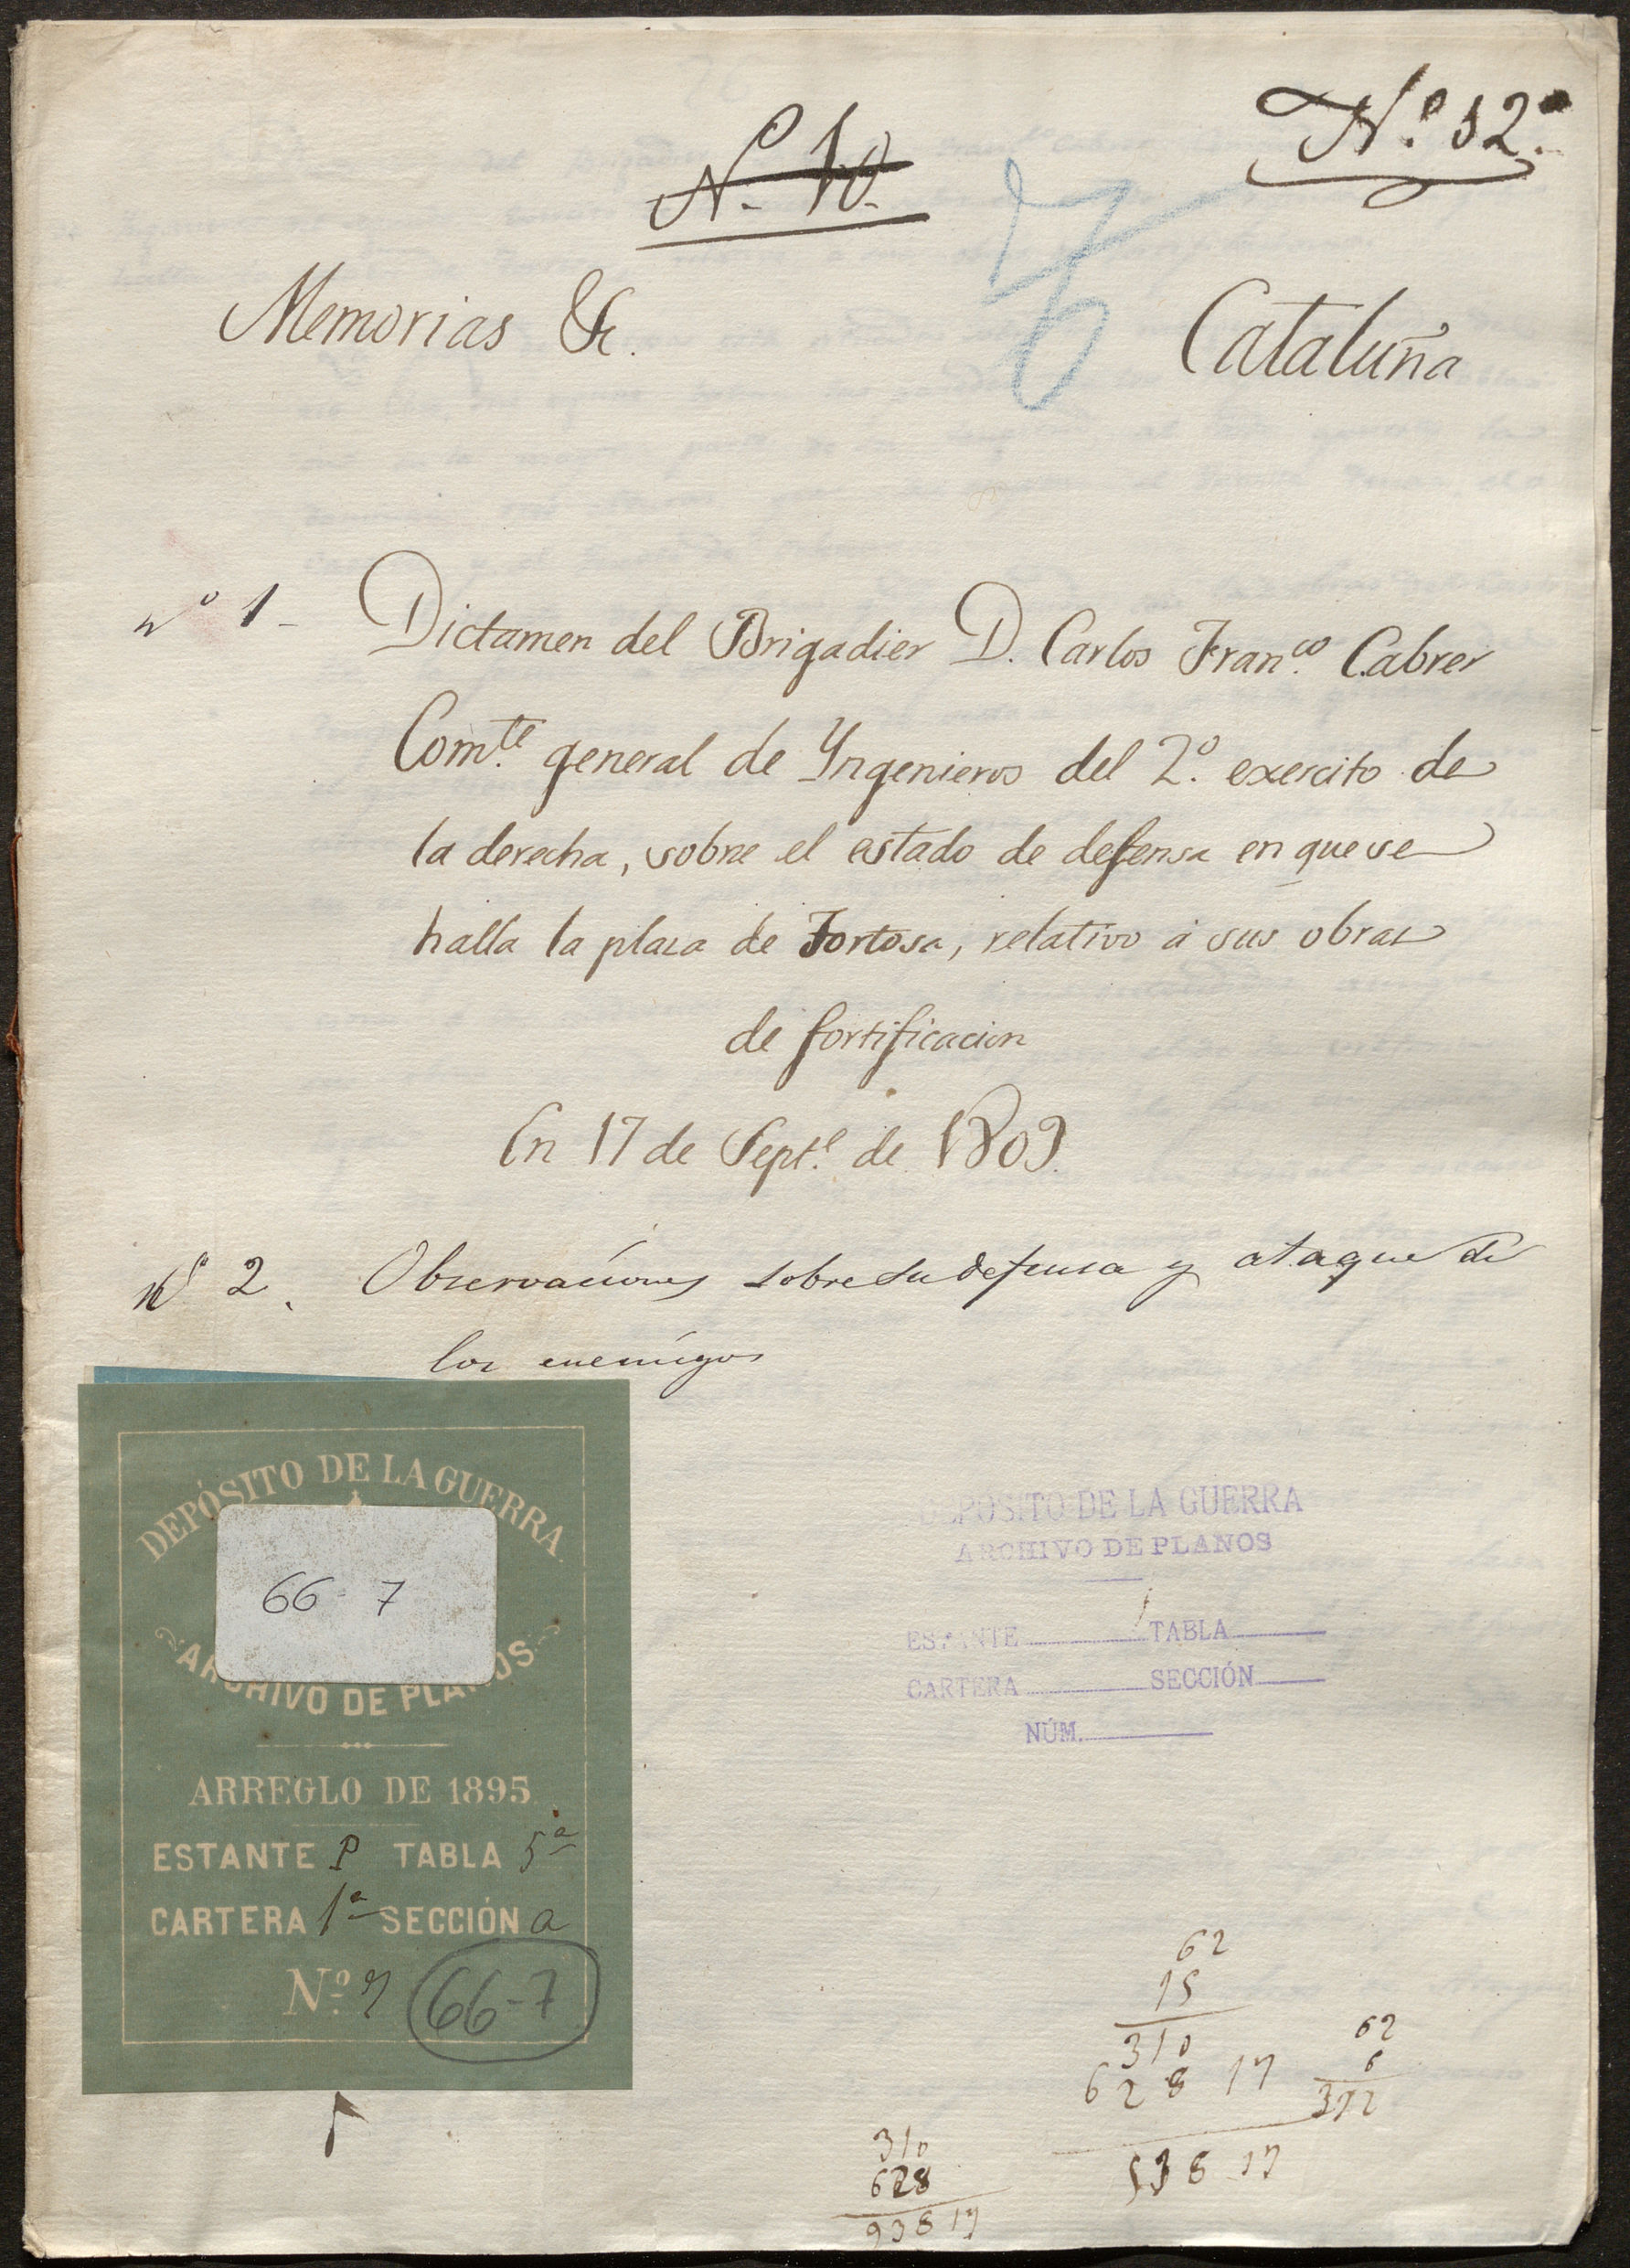 Nº 52º
Nº 10
Memorias &c.
Cataluña
nº 1 - Dictamen del Brigadier D. Carlos Franco. Cabrer
Comte. general de Yngenieros del 2º. exercito de
la derecha, sobre el estado de defensa en que se
halla la plaza de Tortosa, relativo á sus obras
de fortificacion
En 17 de Septe. de 1809.
Nº 2. Observaciones sobre su defensa y ataque de
los enemigos
DEPÓSITO DE LA GUERRA
66-7
ARCHIVO DE PLANOS
ARREGLO DE 1895
ESTANTE P TABLA 5ª
CARTERA 1ª SECCIÓN a
Nº 7 66-7
DEPOSITO DE LA GUERRA
ARCHIVO DE PLANOS
ESTANTE TABLA
CARTERA SECCIÓN
NÚM.
62
15
310
628 17
938 17
62
6
372
310
628
938 17